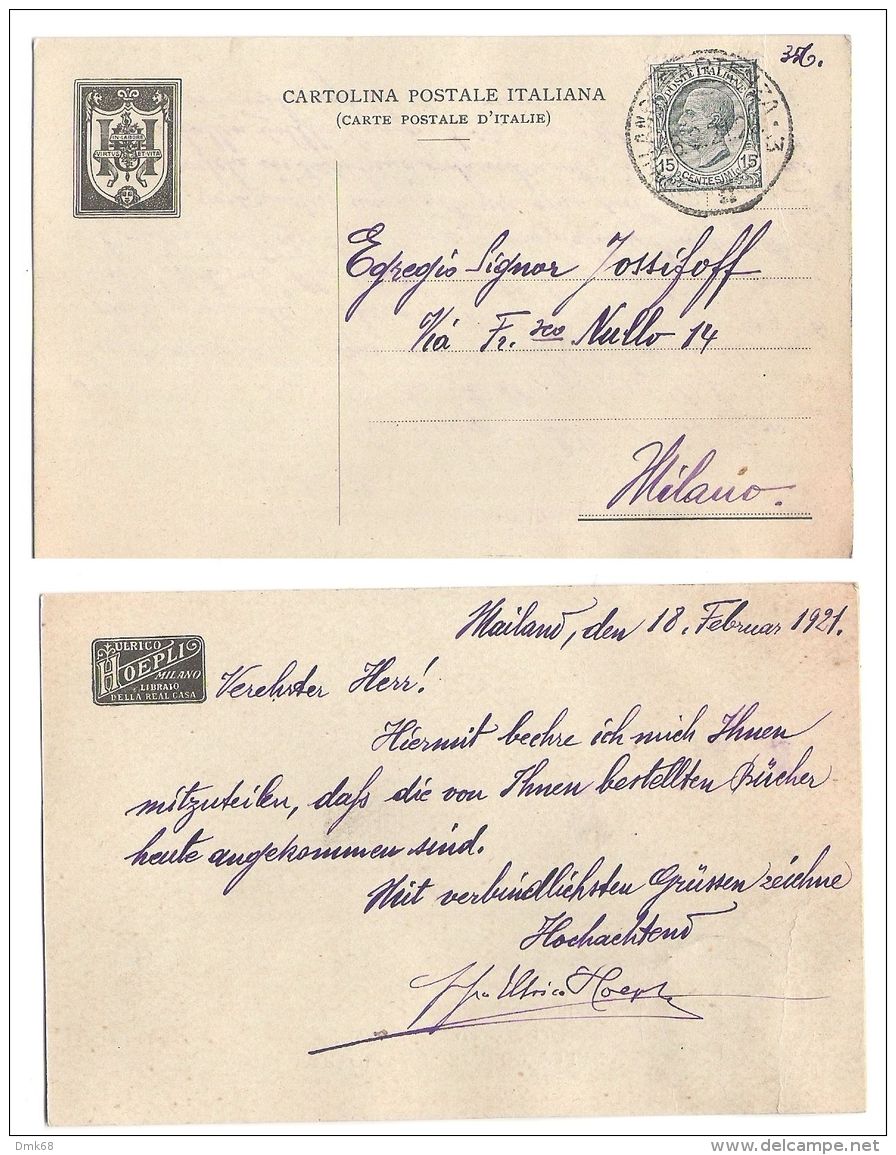 CARTOLINA POSTALE ITALIANA
(CARTE POSTALE D'ITALIE)
IN LABORE
VIRTUS ET VITA
H
POSTE ITALIANE
15 CENTESIMI 15
Egregio Signor Jossifoff
Via Fr.sco Nullo 14
Milano.
Mailand, den 18. Februar 1921.
ULRICO
HOEPLI
MILANO
LIBRAIO
DELLA REAL CASA
Verehrter Herr!
Hiermit beehre ich mich Ihnen
mitzuteilen, daß die von Ihnen bestellten Bücher
heute angekommen sind.
Mit verbindlichsten Grüssen zeichne
Hochachtend
Ulrico Hoepli
Dmk68
www.delcampe.net